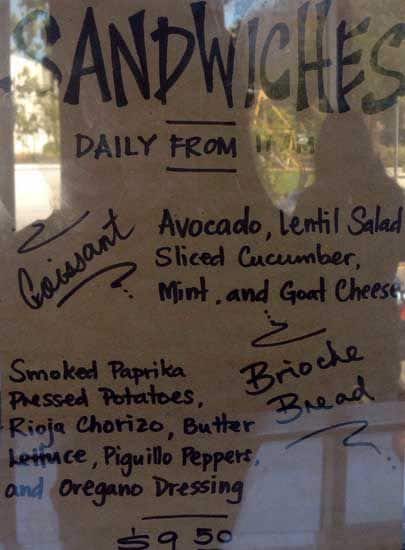 SANDWICHES
DAILY FROM
Coissant
Avocado, Lentil Salad
Sliced Cucumber,
Mint, and Goat Cheese
Brioche
Bread
Smoked Paprika
Pressed Potatoes,
Rioja Chorizo, Butter
Lettuce, Piguillo Peppers,
and Oregano Dressing
$9 50